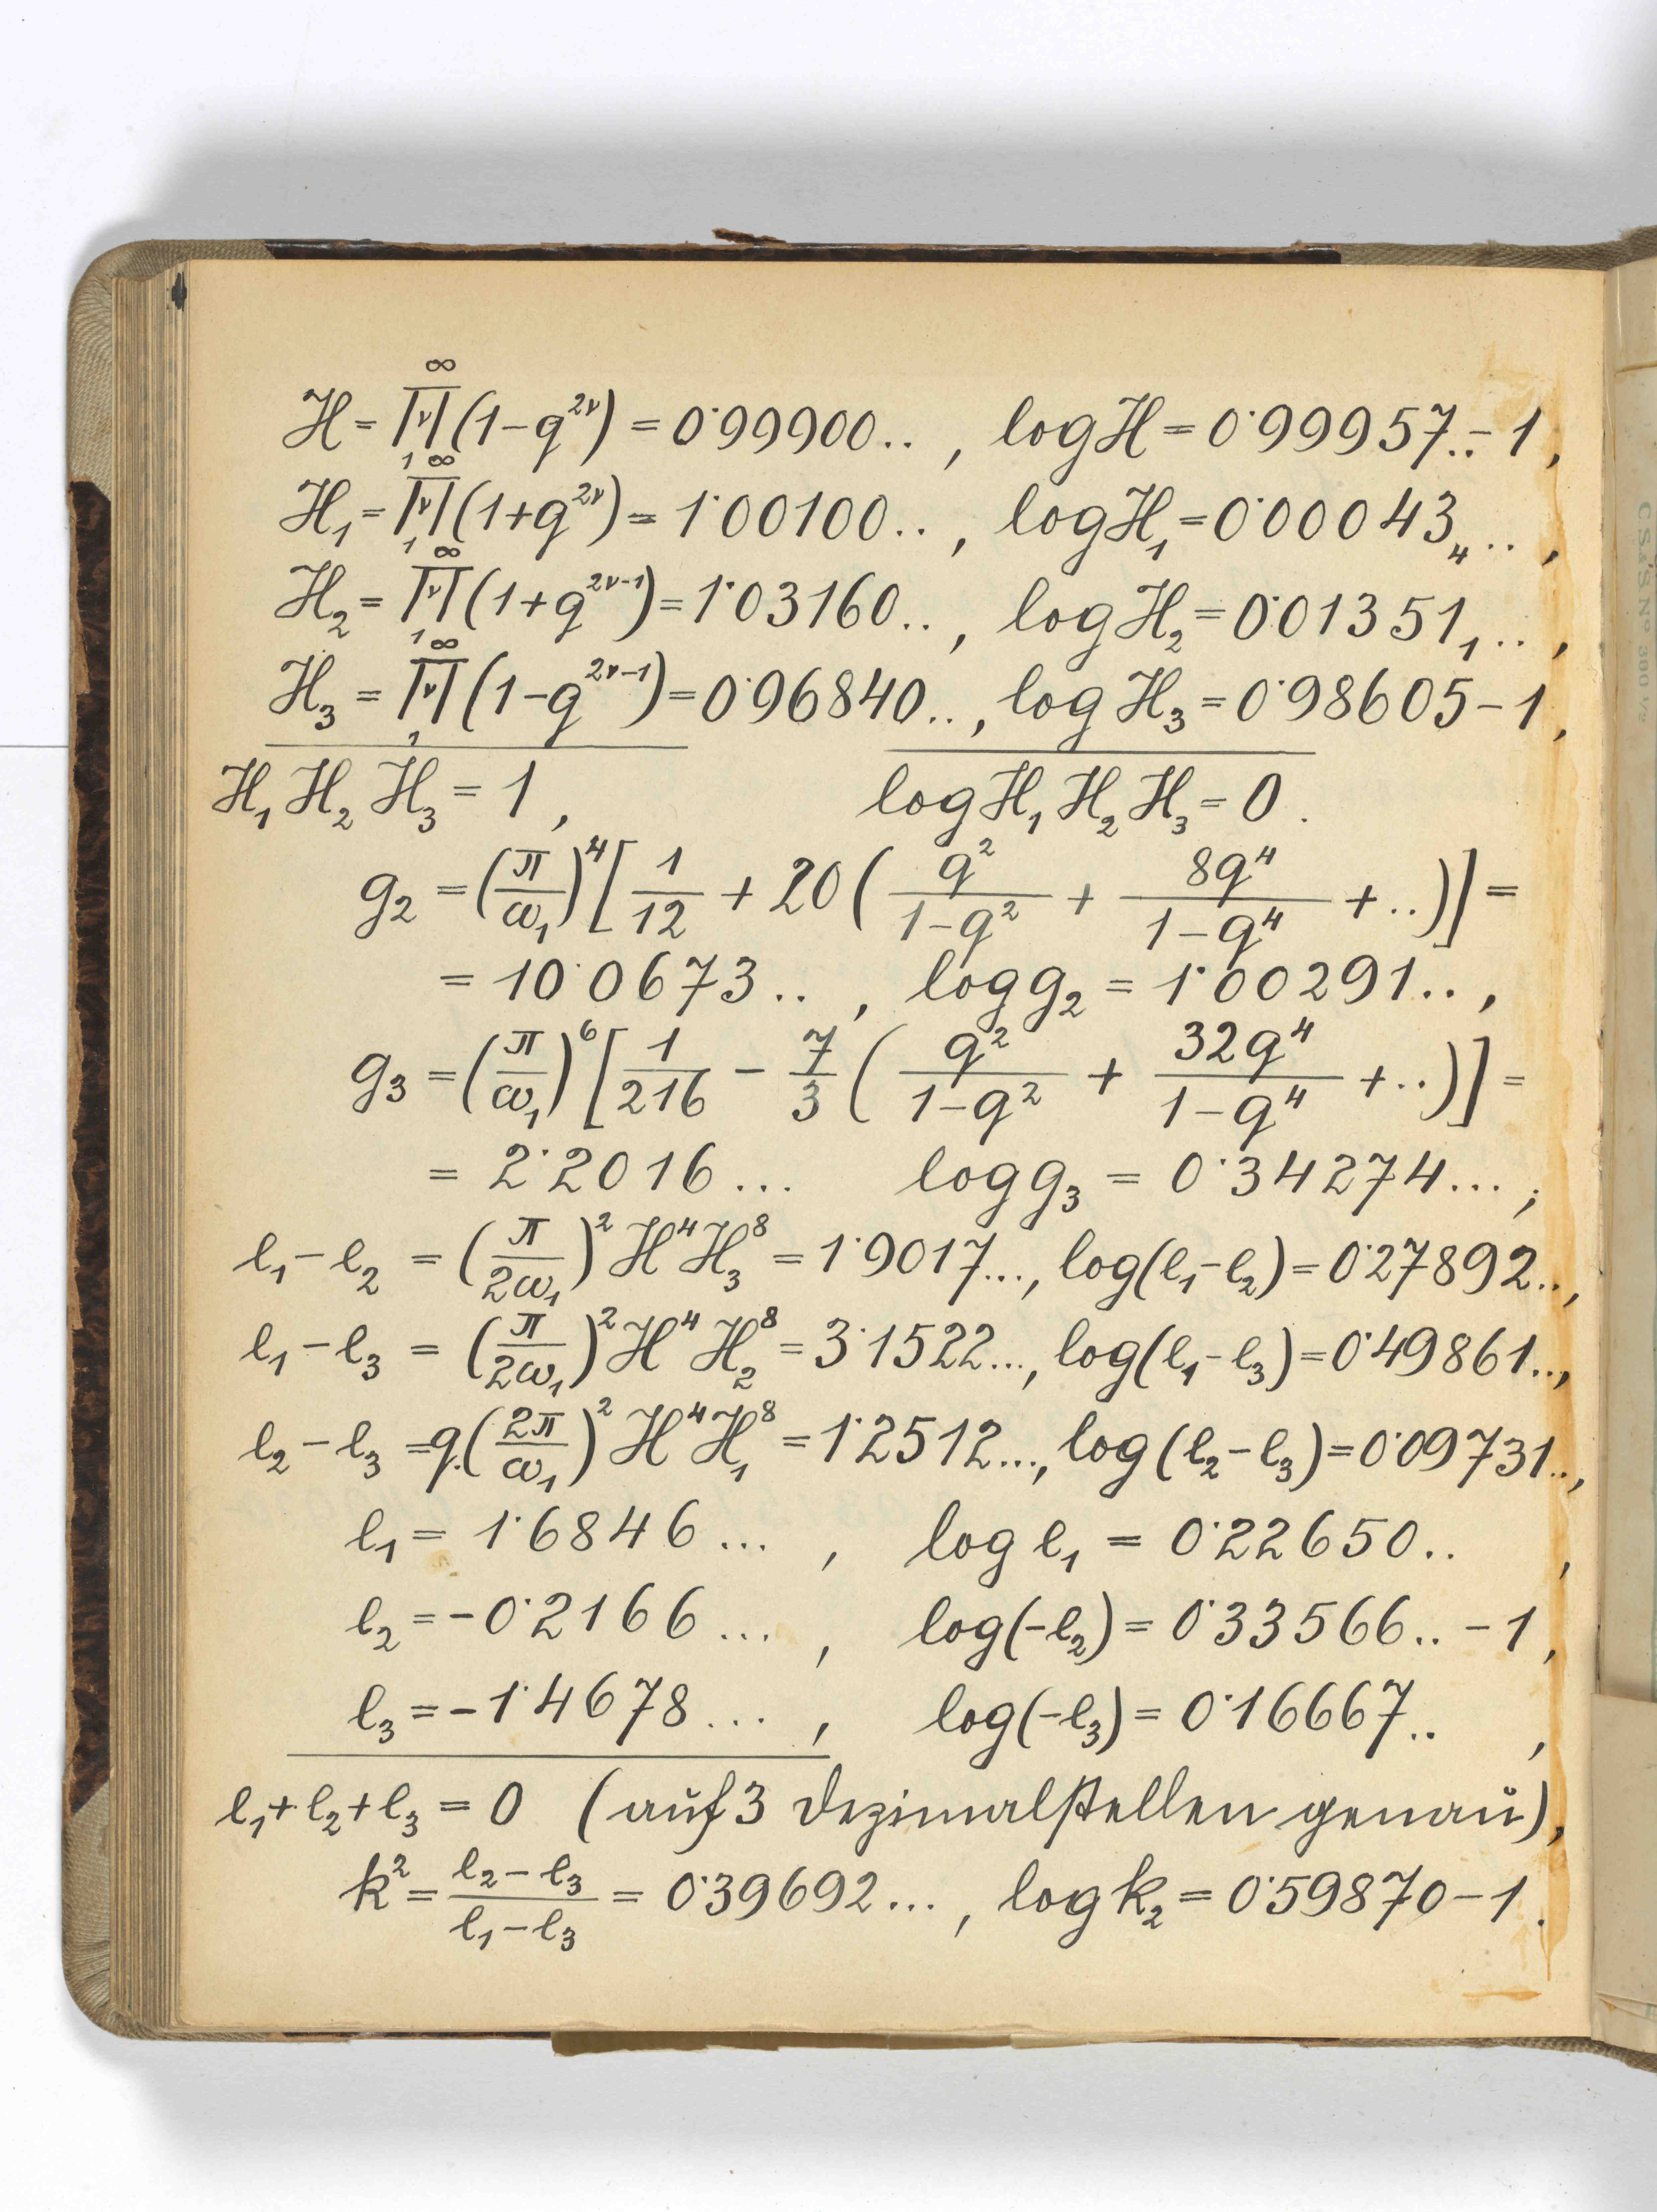 H = ∏ν₁^∞ (1-q^{2ν}) = 0·99900.. , log H = 0·99957.. - 1,
H₁ = ∏ν₁^∞ (1+q^{2ν}) = 1·00100.. , log H₁ = 0·00043₄.. ,
H₂ = ∏ν₁^∞ (1+q^{2ν-1}) = 1·03160.. , log H₂ = 0·01351₁.. ,
H₃ = ∏ν₁^∞ (1-q^{2ν-1}) = 0·96840.. , log H₃ = 0·98605 - 1,
H₁ H₂ H₃ = 1 , log H₁ H₂ H₃ = 0 .
g₂ = (π/ω₁)⁴ [1/12 + 20 (q²/(1-q²) + 8q⁴/(1-q⁴) + ..)] =
= 10·0673.. , log g₂ = 1·00291.. ,
g₃ = (π/ω₁)⁶ [1/216 - 7/3 (q²/(1-q²) + 32q⁴/(1-q⁴) + ..)] =
= 2·2016... log g₃ = 0·34274... ;
e₁ - e₂ = (π/2ω₁)² H⁴ H₃⁸ = 1·9017..., log(e₁-e₂) = 0·27892..,
e₁ - e₃ = (π/2ω₁)² H⁴ H₂⁸ = 3·1522..., log(e₁-e₃) = 0·49861..,
e₂ - e₃ = q.(2π/ω₁)² H⁴ H₁⁸ = 1·2512..., log(e₂-e₃) = 0·09731..,
e₁ = 1·6846... , log e₁ = 0·22650.. ,
e₂ = -0·2166... , log(-e₂) = 0·33566.. - 1 ,
e₃ = -1·4678... , log(-e₃) = 0·16667.. ,
e₁+e₂+e₃ = 0 (auf 3 Dezimalstellen genau),
k² = (e₂-e₃)/(e₁-e₃) = 0·39692... , log k₂ = 0·59870 - 1 .